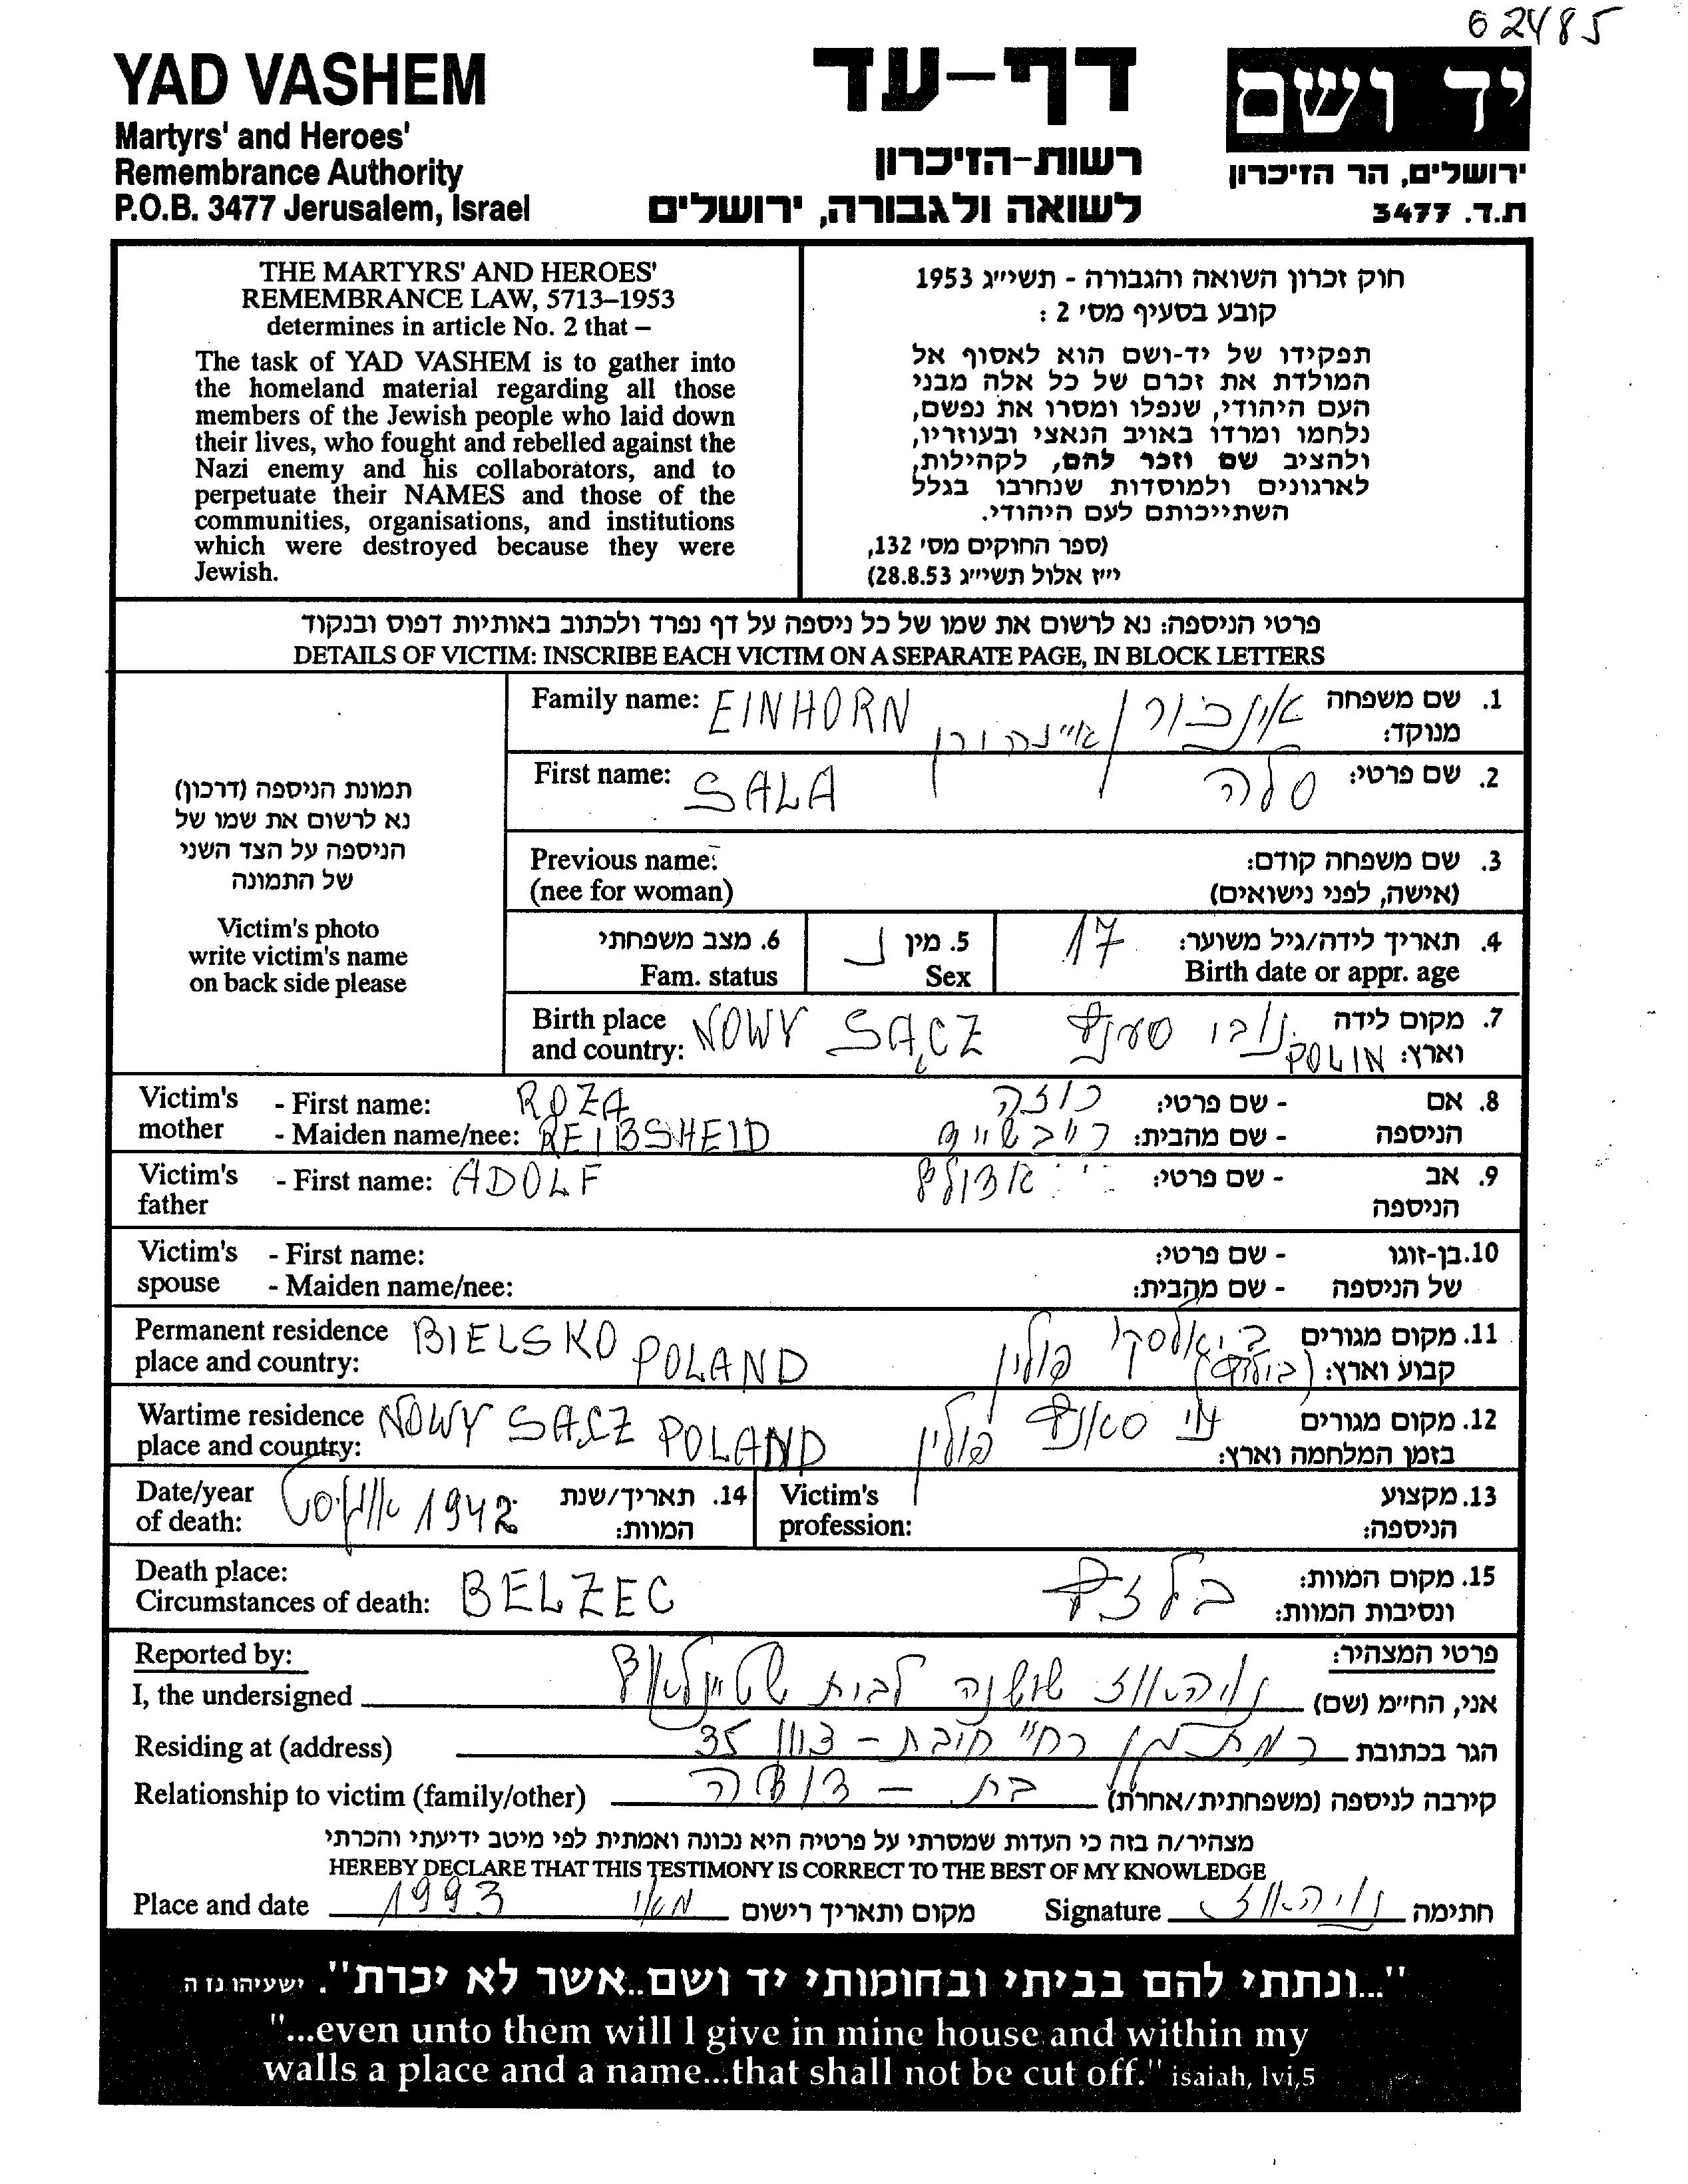 62485
YAD VASHEM
Martyrs' and Heroes'
Remembrance Authority
P.O.B. 3477 Jerusalem, Israel
דף-עד
רשות-הזיכרון
לשואה ולגבורה, ירושלים
יד ושם
ירושלים, הר הזיכרון
ת.ד. 3477
THE MARTYRS' AND HEROES'
REMEMBRANCE LAW, 5713–1953
determines in article No. 2 that –
The task of YAD VASHEM is to gather into
the homeland material regarding all those
members of the Jewish people who laid down
their lives, who fought and rebelled against the
Nazi enemy and his collaborators, and to
perpetuate their NAMES and those of the
communities, organisations, and institutions
which were destroyed because they were
Jewish.
חוק זכרון השואה והגבורה - תשי״ג 1953
קובע בסעיף מס׳ 2 :
תפקידו של יד-ושם הוא לאסוף אל
המולדת את זכרם של כל אלה מבני
העם היהודי, שנפלו ומסרו את נפשם,
נלחמו ומרדו באויב הנאצי ובעוזריו,
ולהציב שם וזכר להם, לקהילות,
לארגונים ולמוסדות שנחרבו בגלל
השתייכותם לעם היהודי.
(ספר החוקים מס׳ 132,
י״ז אלול תשי״ג 28.8.53)
פרטי הניספה: נא לרשום את שמו של כל ניספה על דף נפרד ולכתוב באותיות דפוס ובנקוד
DETAILS OF VICTIM: INSCRIBE EACH VICTIM ON A SEPARATE PAGE, IN BLOCK LETTERS
תמונת הניספה (דרכון)
נא לרשום את שמו של
הניספה על הצד השני
של התמונה
Victim's photo
write victim's name
on back side please
Family name: EINHORN איינהורן 1. שם משפחה
מנוקד:
First name: SALA סלה 2. שם פרטי:
Previous name: 3. שם משפחה קודם:
(nee for woman) (אישה, לפני נישואים)
6. מצב משפחתי 5. מין נ 17 4. תאריך לידה/גיל משוער:
Fam. status Sex Birth date or appr. age
Birth place NOWY SĄCZ נובי סענץ 7. מקום לידה
and country: POLIN וארץ:
Victim's - First name: ROZA רוזה - שם פרטי: 8. אם
mother - Maiden name/nee: REIBSHEID - שם מהבית: הניספה
Victim's - First name: ADOLF אדולף - שם פרטי: 9. אב
father הניספה
Victim's - First name: - שם פרטי: 10. בן-זוגו
spouse - Maiden name/nee: - שם מהבית: של הניספה
Permanent residence BIELSKO POLAND ביאלסקו פולין 11. מקום מגורים
place and country: קבוע וארץ:
Wartime residence NOWY SĄCZ POLAND סאנץ פולין 12. מקום מגורים
place and country: בזמן המלחמה וארץ:
Date/year אוגוסט 1942 14. תאריך/שנת
of death: המוות:
Victim's 13. מקצוע
profession: הניספה:
Death place: BELZEC בלזץ 15. מקום המוות:
Circumstances of death: ונסיבות המוות:
Reported by: פרטי המצהיר:
I, the undersigned נויהאוז שושנה לבית אני, הח״מ (שם)
Residing at (address) רמת גן רח״ חיבת-ציון 35 הגר בכתובת
Relationship to victim (family/other) בת - דודה קירבה לניספה (משפחתית/אחרת)
מצהיר/ה בזה כי העדות שמסרתי על פרטיה היא נכונה ואמתית לפי מיטב ידיעתי והכרתי
HEREBY DECLARE THAT THIS TESTIMONY IS CORRECT TO THE BEST OF MY KNOWLEDGE
Place and date 1993 מאי מקום ותאריך רישום Signature נויהאוז חתימה
"...ונתתי להם בביתי ובחומותי יד ושם..אשר לא יכרת". ישעיהו נו ה
"...even unto them will I give in mine house and within my
walls a place and a name...that shall not be cut off." isaiah, lvi,5